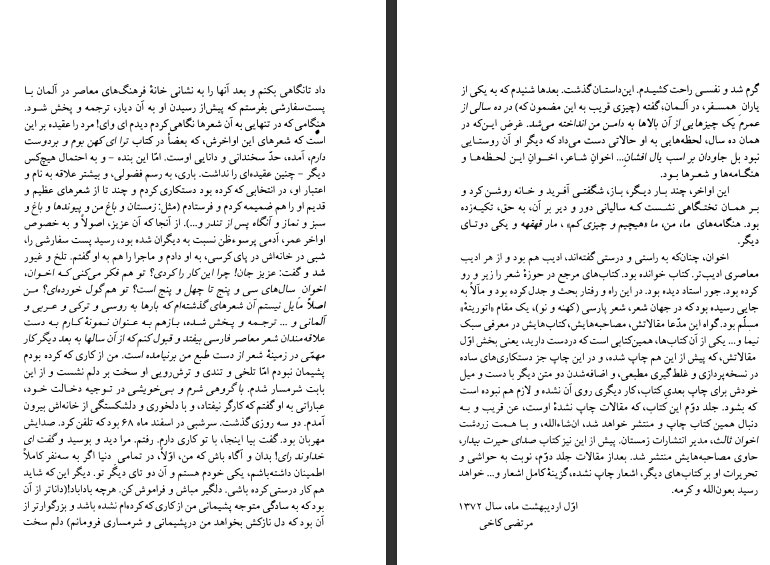 داد تانگاهی بکنم و بعد آنها را به نشانی خانهٔ فرهنگ‌های معاصر در آلمان با
پست‌سفارشی بفرستم که پیش‌از رسیدن او به آن دیار، ترجمه و پخش شود.
هنگامی‌که در تنهایی به آن شعرها نگاهی کردم دیدم ای وای! مرد را عقیده بر این
است که شعرهای این اواخرش، که بعضاً در کتاب ترا ای کهن بوم و بردوست
دارم، آمده، حدّ سخندانی و دانایی اوست. امّا این بنده – و به احتمال هیچ‌کس
دیگر – چنین عقیده‌ای را نداشت. باری، به رسم فضولی، و بیشتر علاقه به نام و
اعتبار او، در انتخابی که کرده بود دستکاری کردم و چند تا از شعرهای عظیم و
قدیم او را هم ضمیمه‌کردم و فرستادم (مثل: زمستان و باغ من و پیوندها و باغ و
سبز و نماز و آنگاه پس از تندر و...). از آنجا که آن عزیز، اصولاً و به خصوص
اواخر عمر، آدمی پرسوءظن نسبت به دیگران شده بود، رسید پست سفارشی را،
شبی در خانه‌اش در پای کرسی، به او دادم و ماجرا را هم به او گفتم. تلخ و غیور
شد و گفت: عزیز جان! چرا این کار را کردی؟ تو هم فکر می‌کنی کـه اخـوان،
اخوانِ سال‌های سی و پنج تا چهل و پنج است؟ تو هم گول خورده‌ای؟ مـن
اصلاً مایل نیستم آن شعرهای گذشته‌ام که بارها به روسی و ترکی و عربی و
آلمانی و ... ترجمـه و پـخش شـده، بـازهم بـه عـنوان نـمونهٔ کـارم بـه دست
علاقه‌مندان شعر معاصر فارسی بیفتد و قبول کنم که از آن سالها به بعد دیگر کار
مهمّی در زمینهٔ شعر از دست طبع من برنیامده است. من از کاری که کرده بودم
پشیمان نبودم امّا تلخی و تندی و ترش‌رویی او سخت بر دلم نشست و از این
بابت شرمسار شدم. با گروهی شرم و بی‌خویشی در توجیه دخالت خـود،
عباراتی به او گفتم که کارگر نیفتاد، و با دلخوری و دلشکستگی از خانه‌اش بیرون
آمدم. دو سه روزی گذشت. سرشبی در اسفند ماه ۶۸ بود که تلفن کرد. صدایش
مهربان بود. گفت بیا اینجا، با تو کاری دارم. رفتم. مرا دید و بوسید و گفت ای
خداوند رای! بدان و آگاه باش که من، اوّلاً، در تمامی دنیا اگر به سه‌نفر کاملاً
اطمینان داشته‌باشم، یکی خودم هستم و آن دو تای دیگر تو. دیگر این که شاید
هم کار درستی کرده باشی. دلگیر مباش و فراموش کن. هرچه باداباد!(داناتر از آن
بود که به سادگی متوجه پشیمانی من از کاری که کرده‌ام نشده باشد و بزرگوارتر از
آن بود که دل نازکش بخواهد من درپشیمانی و شرمساری فرومانم) دلم سخت
گرم شد و نفسـی راحت کشیدم. این‌داستان گذشت. بعدها شنیدم که به یکی از
یاران همسـفر، در آلـمان، گفته (چیزی قریب به این مضمون که) در ده سالی از
عمرم یک چیزهایی از آن بالاها به دامن من انداخته می‌شد. غرض این‌که در
همان ده سال، لحظه‌هایی به او حالاتی دست می‌داد که دیگر او آن روستایی
نبود بل جاودان بر اسب یال افشان... اخوانِ شـاعر، اخـوانِ ایـن لحظـه‌هـا و
هنگامه‌ها و شعـرها بـود.
این اواخر، چند بـار دیگـر، بـاز، شگفتـی آفـرید و خـانه روشن کرد و
بر همـان تختگـاهی نشست کـه سالیانی دور و دیر بر آن، به حق، تکیه‌زده
بود. هنگامه‌های ما، من، ما «هیچیم و چیزی کم»، مار قهقهه و یکی دوتـای
دیگر.
اخوان، چنان‌که به راستی و درستی گفته‌اند، ادیب هم بود و از هر ادیب
معاصری ادیب‌تر. کتاب خوانده بود. کتاب‌های مرجع در حوزهٔ شعر را زیر و رو
کرده بود. جور استاد دیده بود. در این راه و رفتار بحث و جدل کرده بود و مآلاً به
جایی رسیده بود که در جهان شعر، شعر پارسی (کهنه و نو)، یک مقام «اتوریتهٔ»
مسلّم بود. گواه این مدّعا مقالاتش، مصاحبه‌هایش، کتاب‌هایش در معرفی سبک
نیما و... یکی از آن کتاب‌ها، همین‌کتابی است که دردست دارید، یعنی بخش اوّل
مقالاتش، که پیش از این هم چاپ شده، و در این چاپ جز دستکاری‌های ساده
در نسخه‌پردازی و غلط گیری مطبعی، و اضافه‌شدن دو متن دیگر با دست و میل
خودش برای چاپ بعدی کتاب، کار دیگری روی آن نشده و لازم هم نبوده است
که بشود. جلد دوّم این کتاب، که مقالات چاپ نشدهٔ اوست، عن قریب و بـه
دنبال همین کتاب چاپ و منتشر خواهد شد، ان‌شاءالله، و بـا همـت زردشت
اخوان ثالث، مدیر انتشارات زمستان. پیش از این نیز کتاب صدای حیرت بیدار،
حاوی مصاحبه‌هایش منتشر شد. بعداز مقالات جلد دوّم، نوبت به حواشی و
تحریرات او بر کتاب‌های دیگر، اشعار چاپ نشده، گزینهٔ کامل اشعار و... خواهد
رسید بعون‌الله و کرمه.
اوّل اردیبهشت ماه، سال ۱۳۷۲
مرتضی کاخی